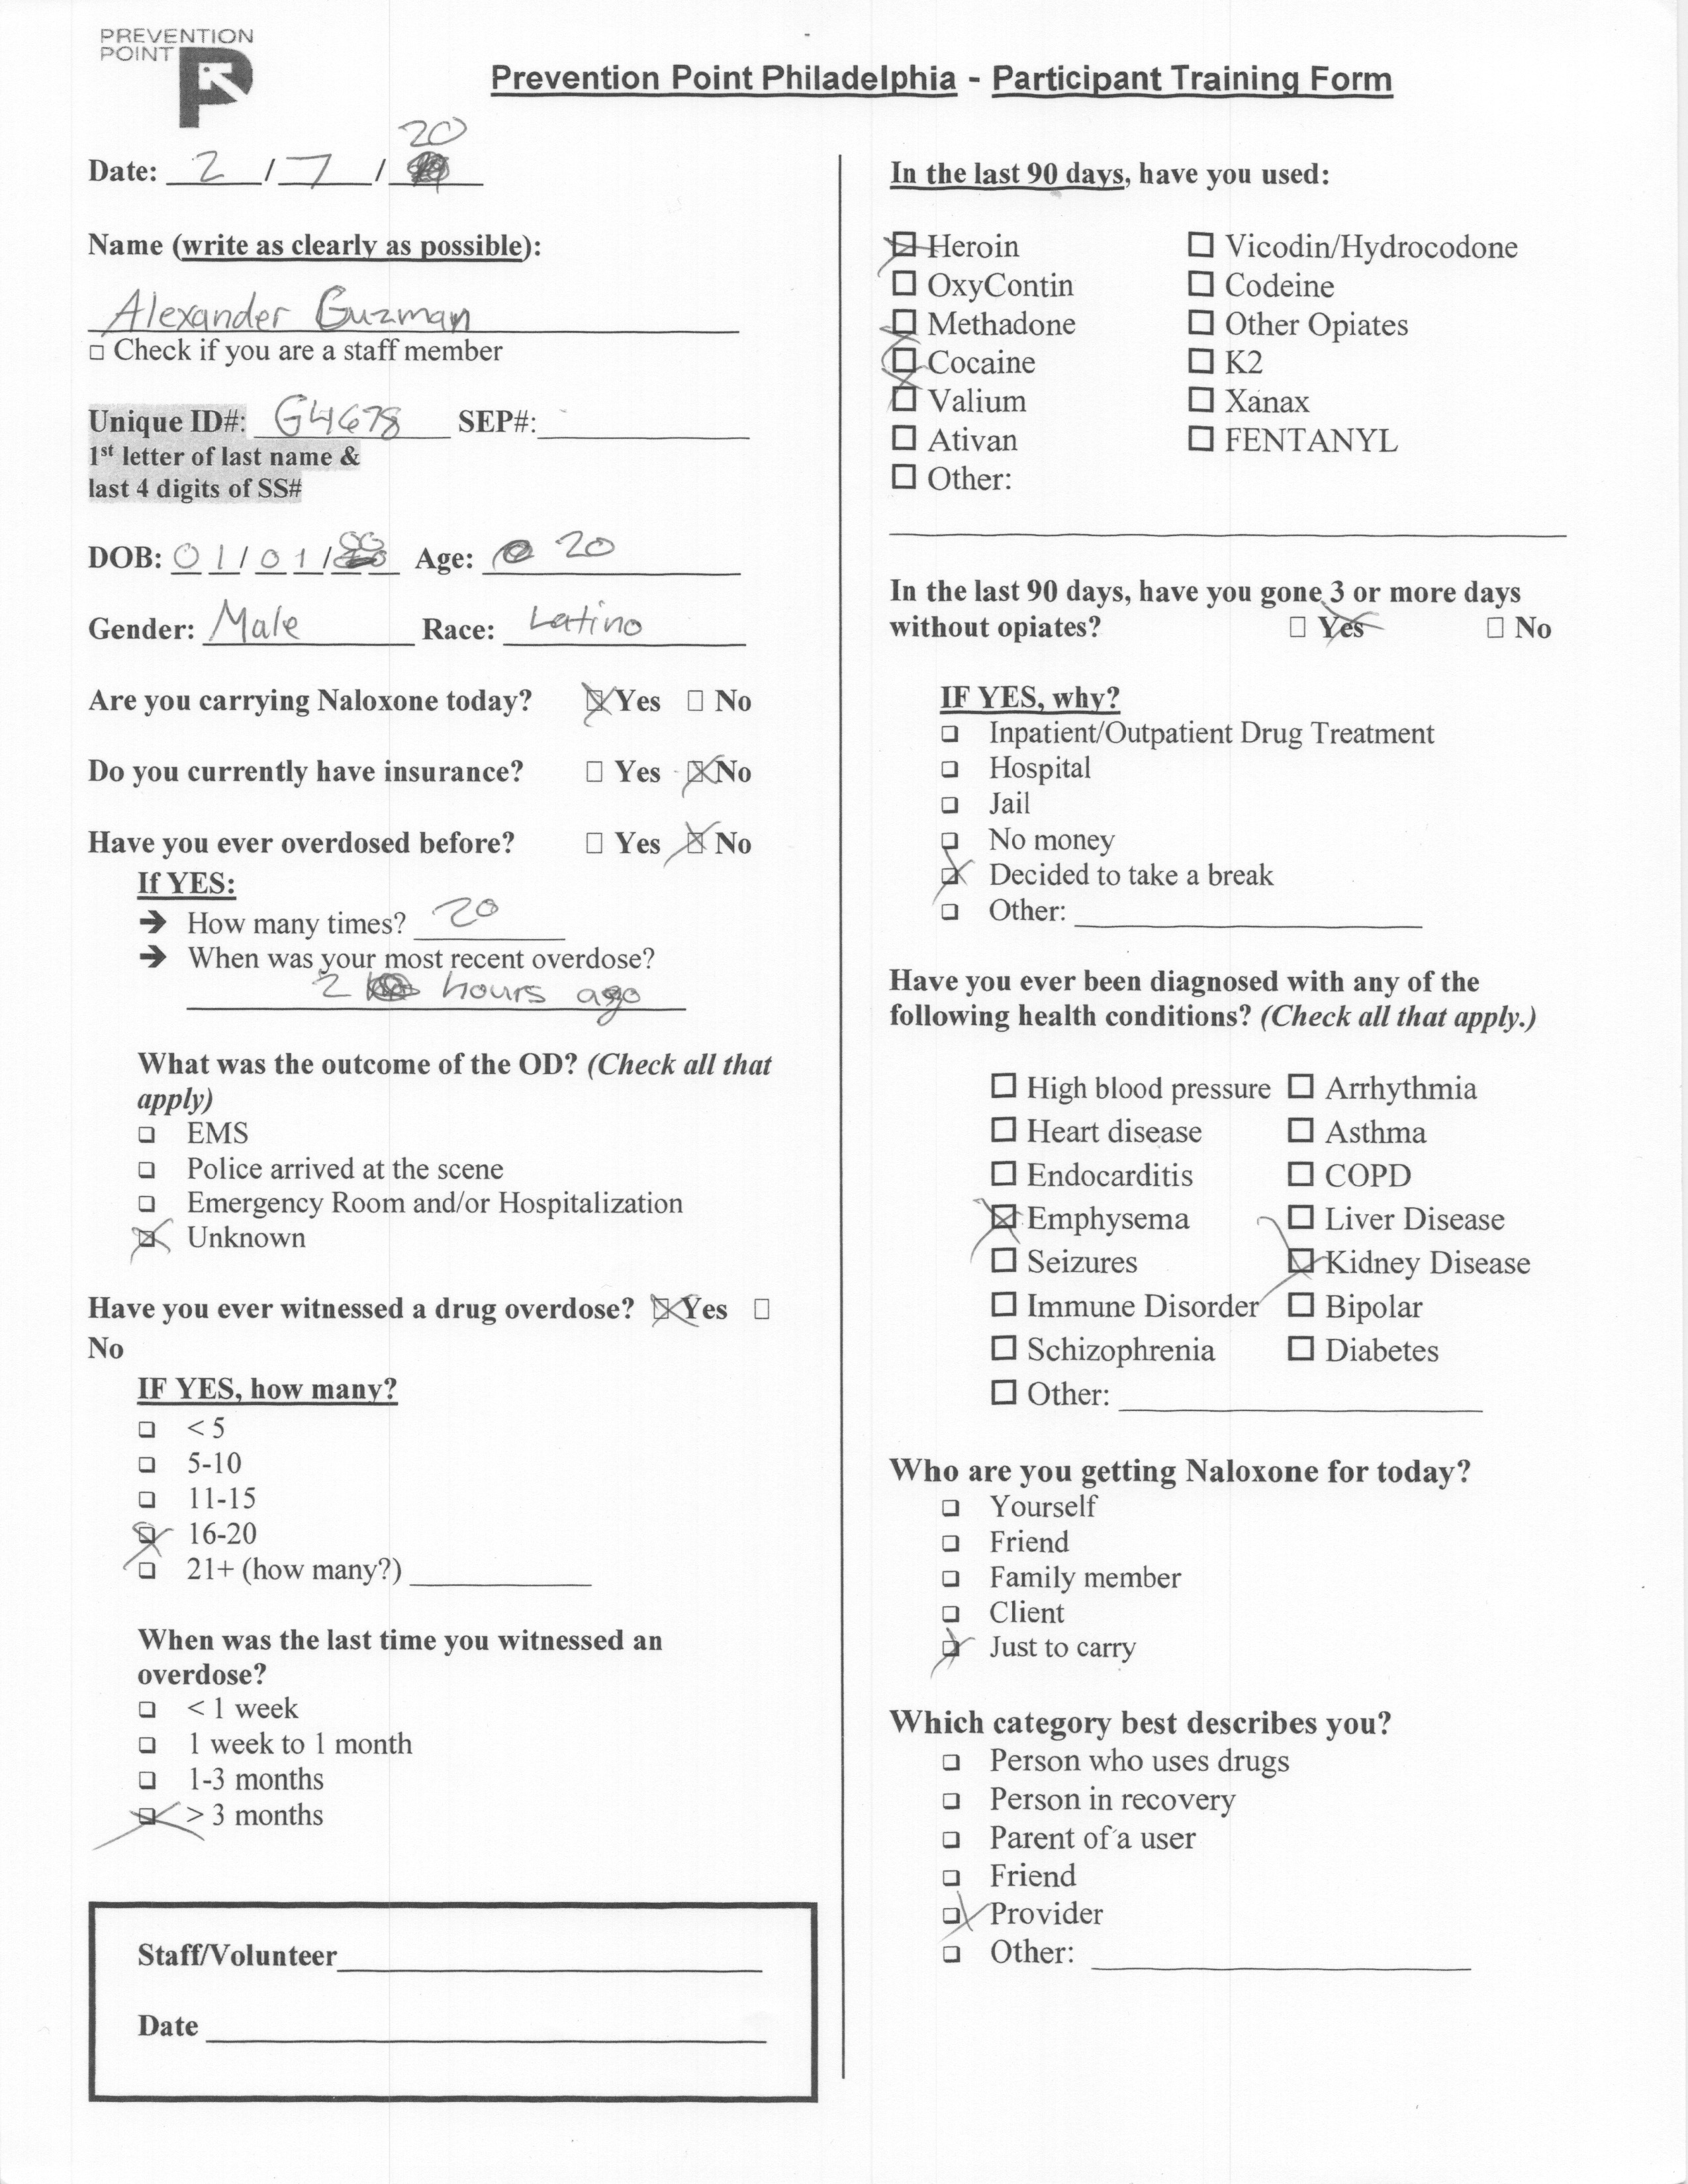 PREVENTION
POINT
Prevention Point Philadelphia - Participant Training Form
20
Date: 2 / 7 /
Name (write as clearly as possible):
Alexander Guzman
□ Check if you are a staff member
Unique ID#: G4678 SEP#:
1st letter of last name &
last 4 digits of SS#
DOB: 01/01/00 Age: 20
Gender: Male Race: Latino
Are you carrying Naloxone today? ☒ Yes □ No
Do you currently have insurance? □ Yes ☒ No
Have you ever overdosed before? □ Yes ☒ No
If YES:
➔ How many times? 20
➔ When was your most recent overdose?
2 hours ago
What was the outcome of the OD? (Check all that
apply)
❑ EMS
❑ Police arrived at the scene
❑ Emergency Room and/or Hospitalization
☒ Unknown
Have you ever witnessed a drug overdose? ☒ Yes □
No
IF YES, how many?
❑ < 5
❑ 5-10
❑ 11-15
☒ 16-20
❑ 21+ (how many?)
When was the last time you witnessed an
overdose?
❑ < 1 week
❑ 1 week to 1 month
❑ 1-3 months
☒ > 3 months
Staff/Volunteer
Date
In the last 90 days, have you used:
☒ Heroin □ Vicodin/Hydrocodone
□ OxyContin □ Codeine
□ Methadone □ Other Opiates
☒ Cocaine □ K2
□ Valium □ Xanax
□ Ativan □ FENTANYL
□ Other:
In the last 90 days, have you gone 3 or more days
without opiates? ☒ Yes □ No
IF YES, why?
❑ Inpatient/Outpatient Drug Treatment
❑ Hospital
❑ Jail
❑ No money
☒ Decided to take a break
❑ Other:
Have you ever been diagnosed with any of the
following health conditions? (Check all that apply.)
□ High blood pressure □ Arrhythmia
□ Heart disease □ Asthma
□ Endocarditis □ COPD
☒ Emphysema □ Liver Disease
□ Seizures ☒ Kidney Disease
□ Immune Disorder □ Bipolar
□ Schizophrenia □ Diabetes
□ Other:
Who are you getting Naloxone for today?
❑ Yourself
❑ Friend
❑ Family member
❑ Client
☒ Just to carry
Which category best describes you?
❑ Person who uses drugs
❑ Person in recovery
❑ Parent of a user
❑ Friend
☒ Provider
❑ Other: